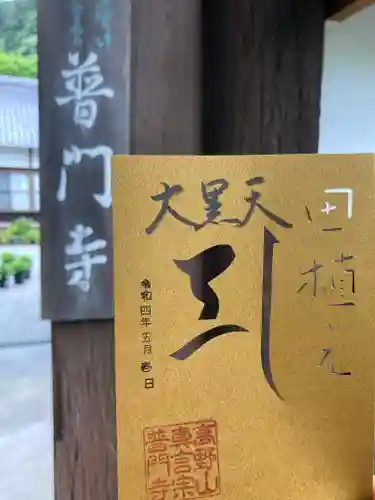 普門寺
大黒天
令和四年五月壱日
高野山
真言宗
普門寺